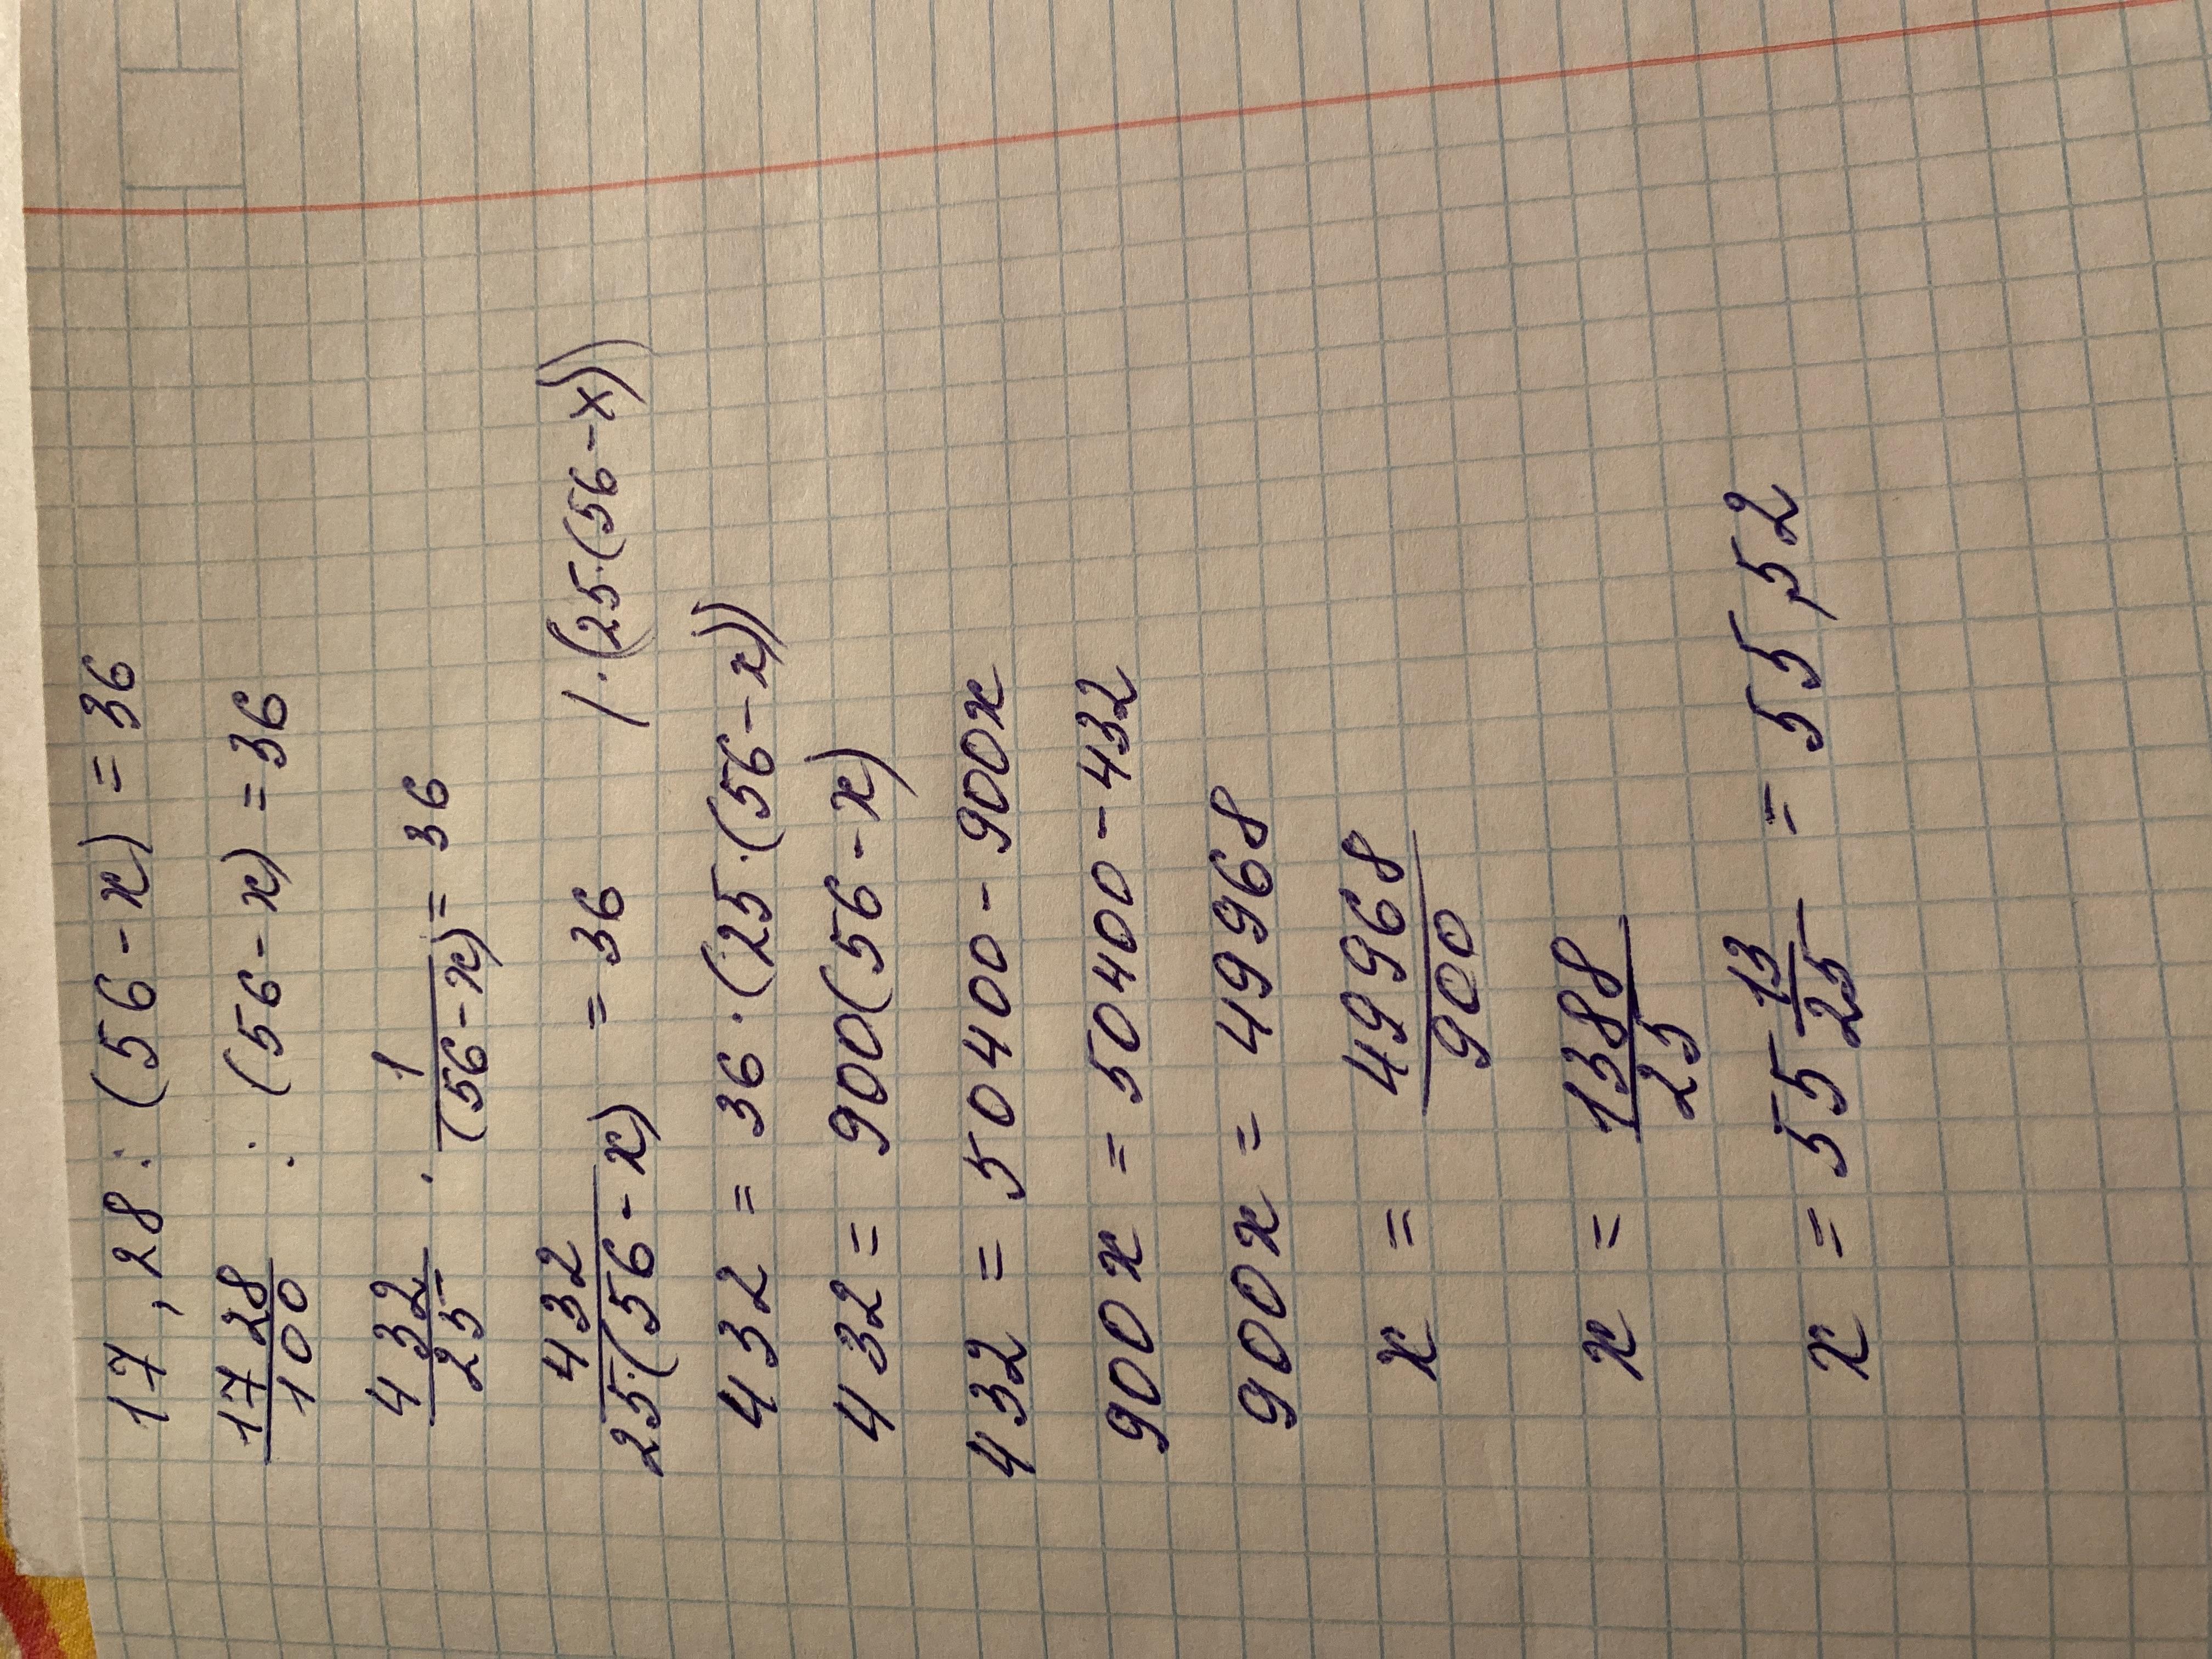 17,28 : (56 - x) = 36
1728/100 : (56 - x) = 36
432/25 · 1/(56 - x) = 36
432/25·(56 - x) = 36 / · (25·(56 - x))
432 = 36 · (25 · (56 - x))
432 = 900(56 - x)
432 = 50400 - 900x
900x = 50400 - 432
900x = 49968
x = 49968/900
x = 1388/25
x = 55 13/25 = 55,52